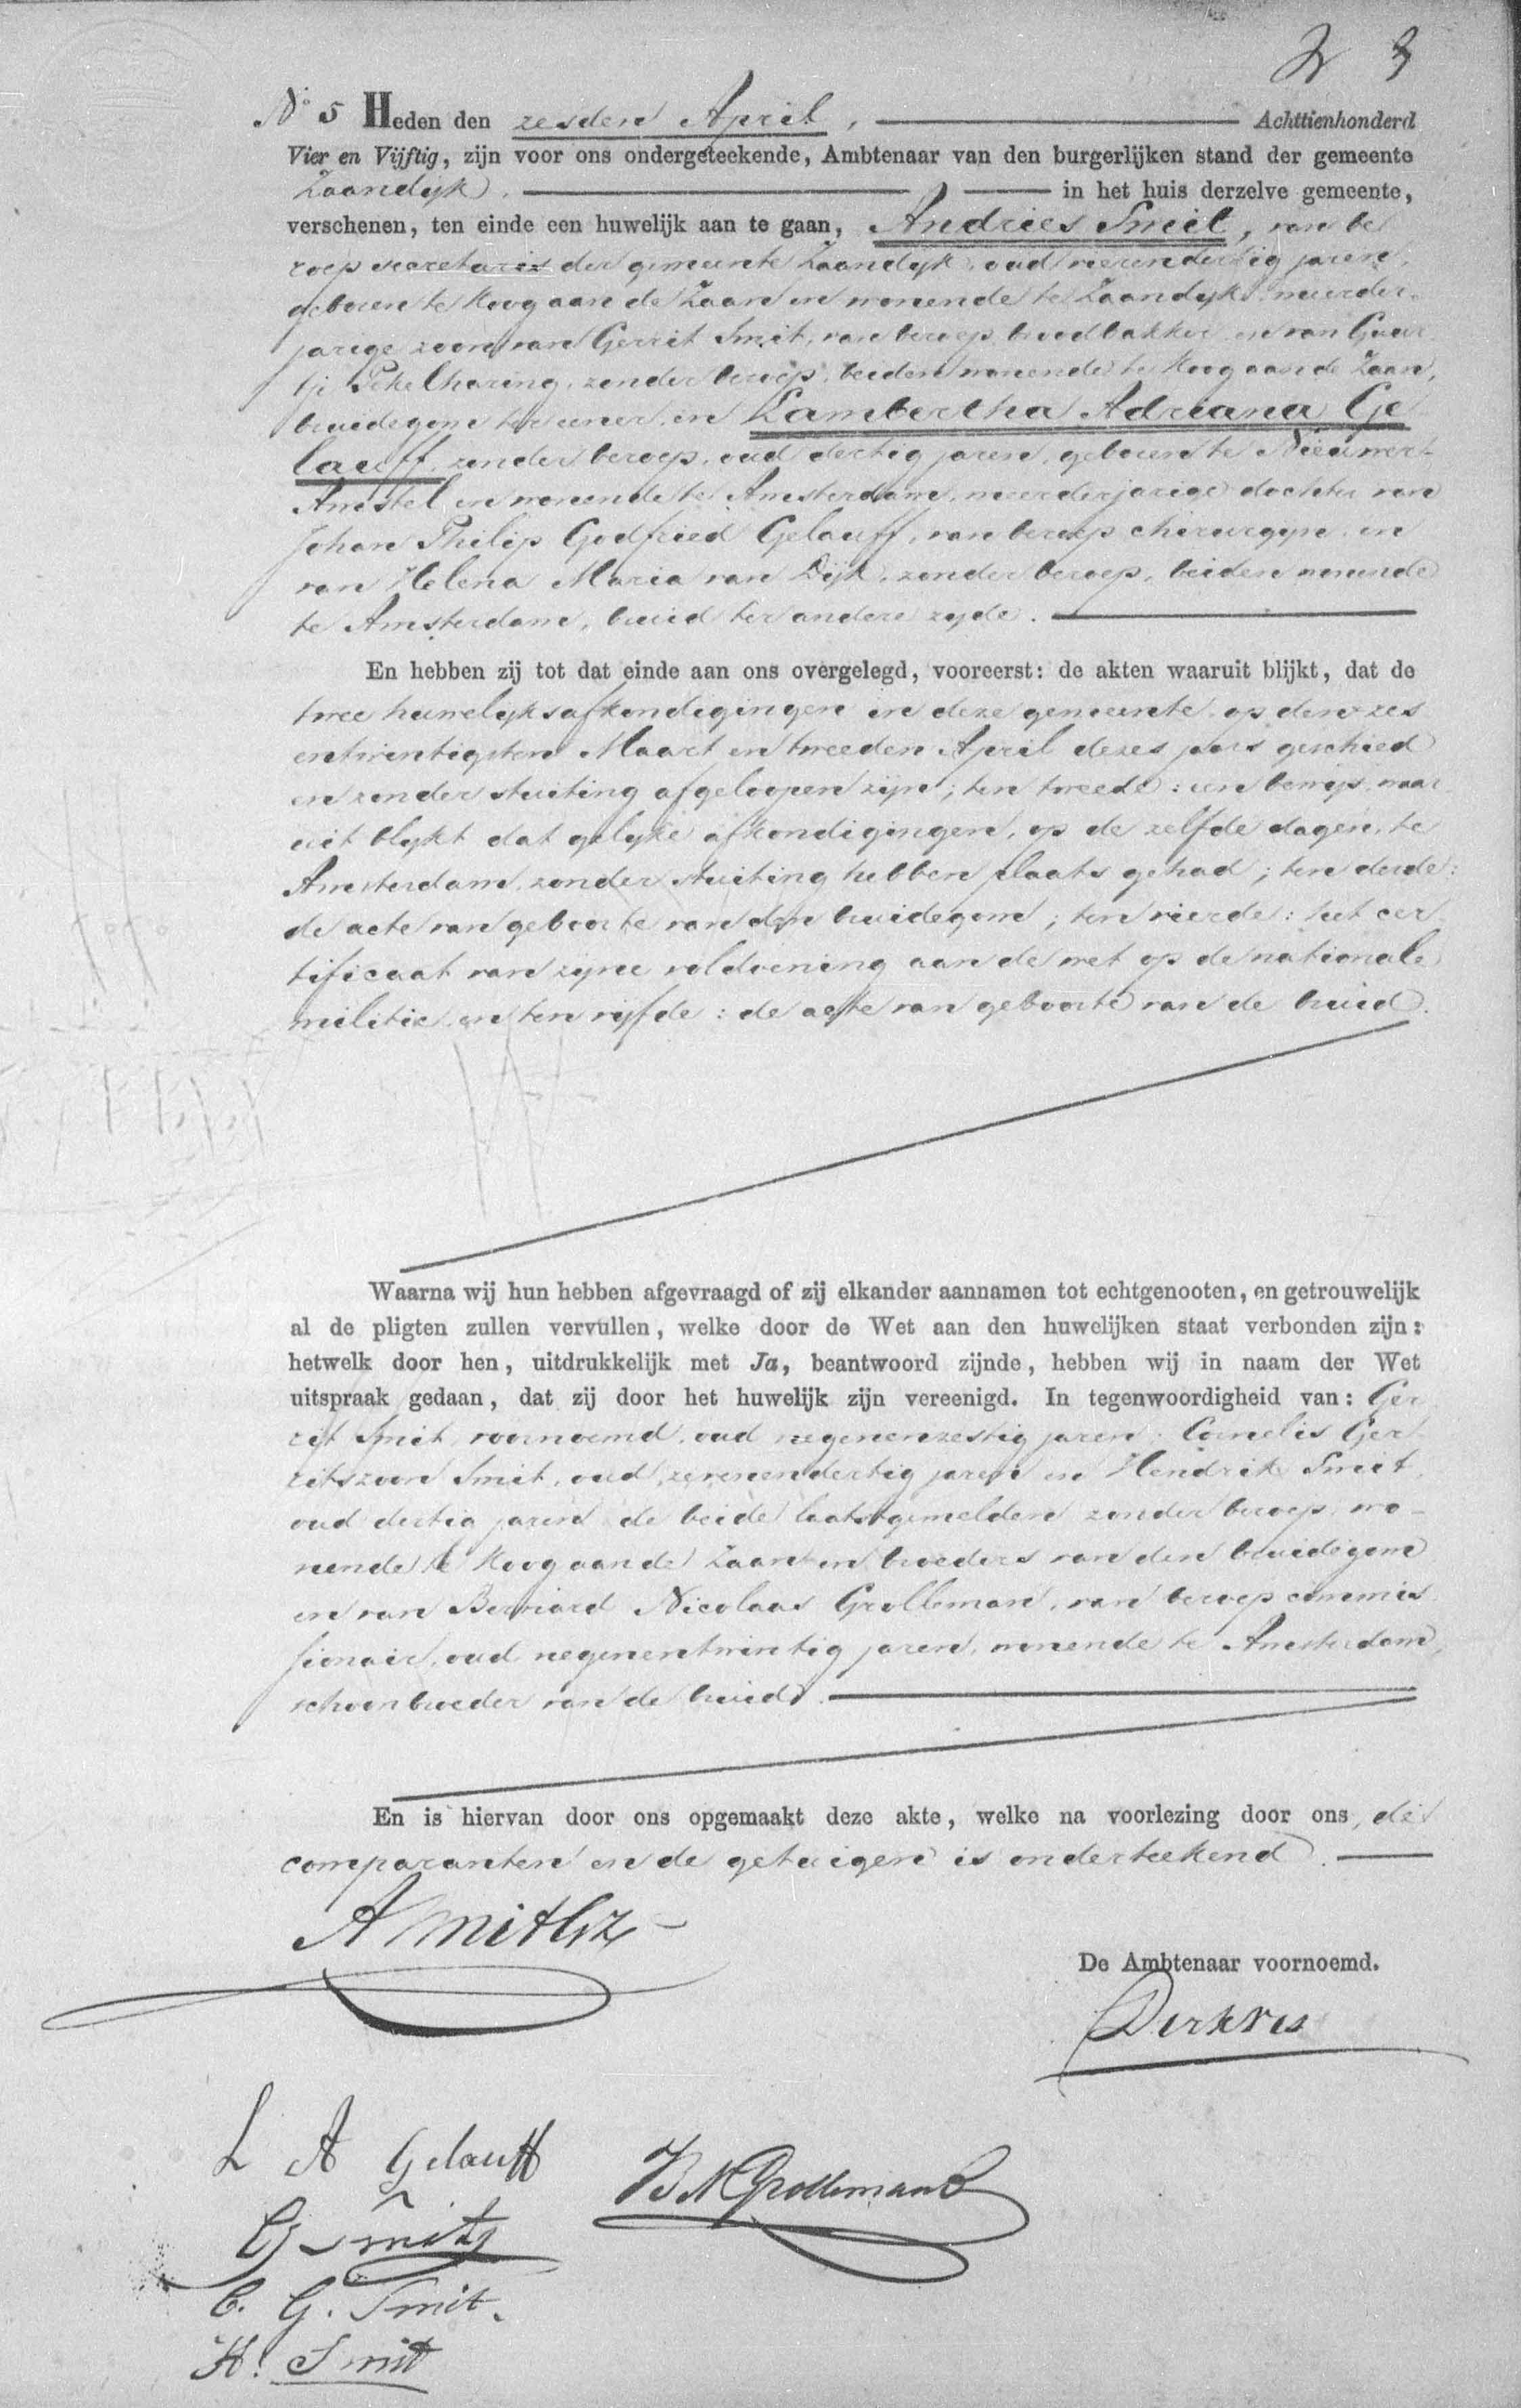 No 5 Heden den zesden April, Achttienhonderd
Vier en Vijftig, zijn voor ons ondergeteekende, Ambtenaar van den burgerlijken stand der gemeente
Zaandyk, in het huis derzelve gemeente,
verschenen, ten einde een huwelijk aan te gaan, Andries Smit, van be
roep secretaris der gemeente Zaandyk, oud vierendertig jaren,
geboren te Koog aan de Zaan en wonende te Zaandyk, meerder-
jarige zoon van Gerrit Smit, van beroep broodbakker en van Guur
tje Pekelharing, zonder beroep, beiden wonende te Koog aan de Zaan,
bruidegom ter eener, en Lambertha Adriana Ge
lauff, zonder beroep, oud dertig jaren, geboren te Nieuwer-
Amstel en wonende te Amsterdam, meerderjarige dochter van
Johan Philip Godfried Gelauff, van beroep chirurgyn en
van Helena Maria van Dijk, zonder beroep, beiden wonende
te Amsterdam, bruid ter andere zyde.
En hebben zij tot dat einde aan ons overgelegd, vooreerst: de akten waaruit blijkt, dat de
twee huwelyksafkondigingen in deze gemeente op den zes
entwintigsten Maart en tweeden April dezes jaars geschied
en zonder stuiting afgeloopen zyn; ten tweede: een bewys waar
uit blykt dat gelyke afkondigingen, op de zelfde dagen, te
Amsterdam, zonder stuiting hebben plaats gehad; ten derde:
de acte van geboorte van den bruidegom; ten vierde: het cer
tificaat van zyne voldoening aan de wet op de nationale
militie en ten vyfde: de acte van geboorte van de bruid.
Waarna wij hun hebben afgevraagd of zij elkander aannamen tot echtgenooten, en getrouwelijk
al de pligten zullen vervullen, welke door de Wet aan den huwelijken staat verbonden zijn:
hetwelk door hen, uitdrukkelijk met Ja, beantwoord zijnde, hebben wij in naam der Wet
uitspraak gedaan, dat zij door het huwelijk zijn vereenigd. In tegenwoordigheid van: Ger
rit Smit, voornoemd, oud negenenzestig jaren, Cornelis Ger
ritszoon Smit, oud zevenendertig jaren en Hendrik Smit,
oud dertig jaren de beide laatstgemelden zonder beroep, wo-
nende te Koog aan de Zaan en broeders van den bruidegom
en van Bernard Nicolaas Grolleman, van beroep commis
sionair, oud negenentwintig jaren, wonende te Amsterdam,
schoonbroeder van de bruid.
En is hiervan door ons opgemaakt deze akte, welke na voorlezing door ons, de
comparanten en de getuigen is onderteekend.
A Smit Gz
De Ambtenaar voornoemd.
Dirk Vis
L A Gelauff
B N Grolleman
G Smit
C. G. Smit.
H. Smit